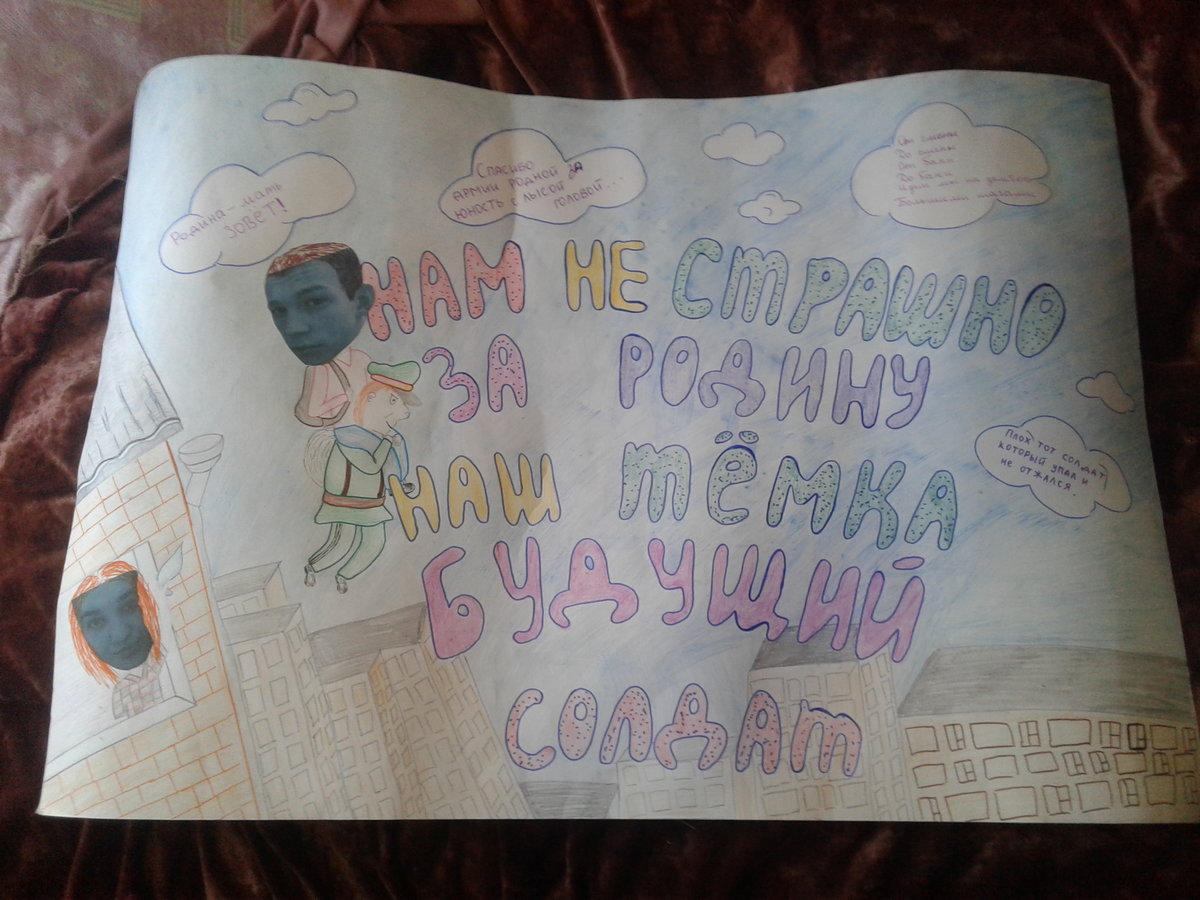 Родина-мать
зовет!
Спасибо
армии родной за
юность с лысой
головой...
От
До
До
НАМ НЕ СТРАШНО
ЗА РОДИНУ
НАШ ТЁМКА
БУДУЩИЙ
СОЛДАТ
Плох тот солдат
который упал и
не отжался.